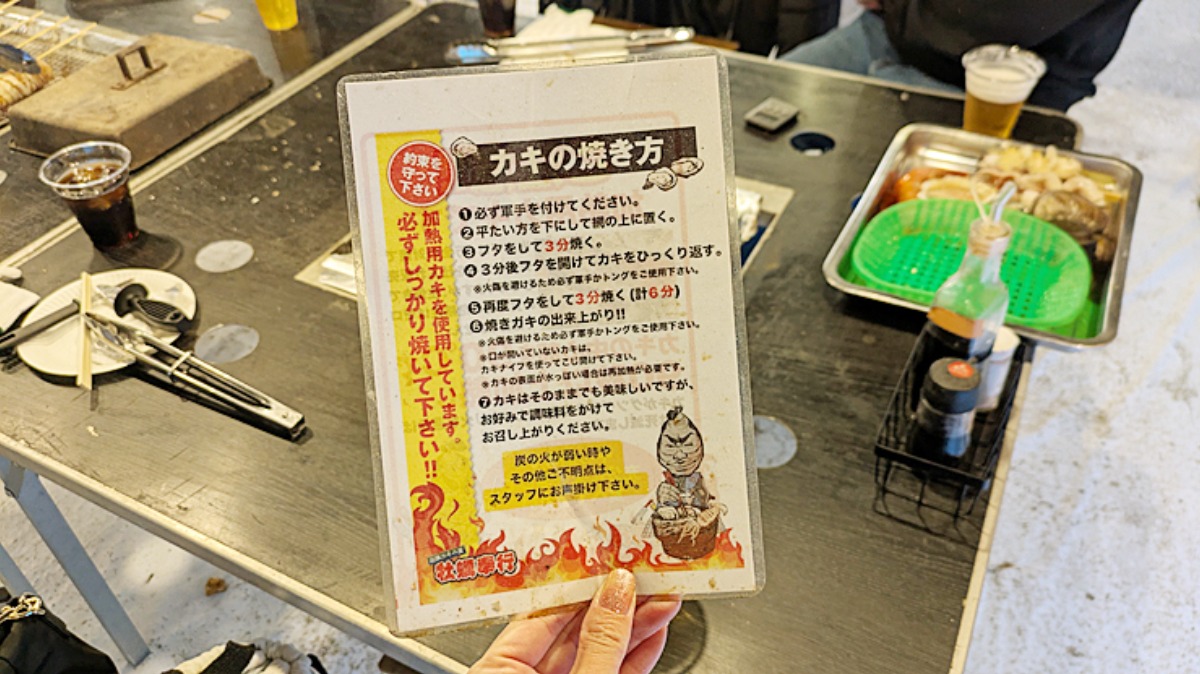 カキの焼き方
約束を
守って
下さい
加熱用カキを使用しています。
必ずしっかり焼いて下さい!!
❶必ず軍手を付けてください。
❷平たい方を下にして網の上に置く。
❸フタをして3分焼く。
❹3分後フタを開けてカキをひっくり返す。
※火傷を避けるため必ず軍手かトングをご使用下さい。
❺再度フタをして3分焼く(計6分)
❻焼きガキの出来上がり!!
※火傷を避けるため必ず軍手かトングをご使用下さい。
※口が開いていないカキは、
カキナイフを使ってこじ開けて下さい。
※カキの表面が水っぽい場合は再加熱が必要です。
❼カキはそのままでも美味しいですが、
お好みで調味料をかけて
お召し上がりください。
炭の火が弱い時や
その他ご不明点は、
スタッフにお声掛け下さい。
牡蠣奉行